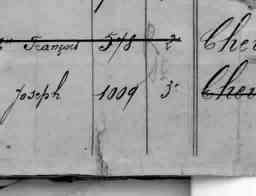 François 578 2° Che
Joseph 1009 3° Che